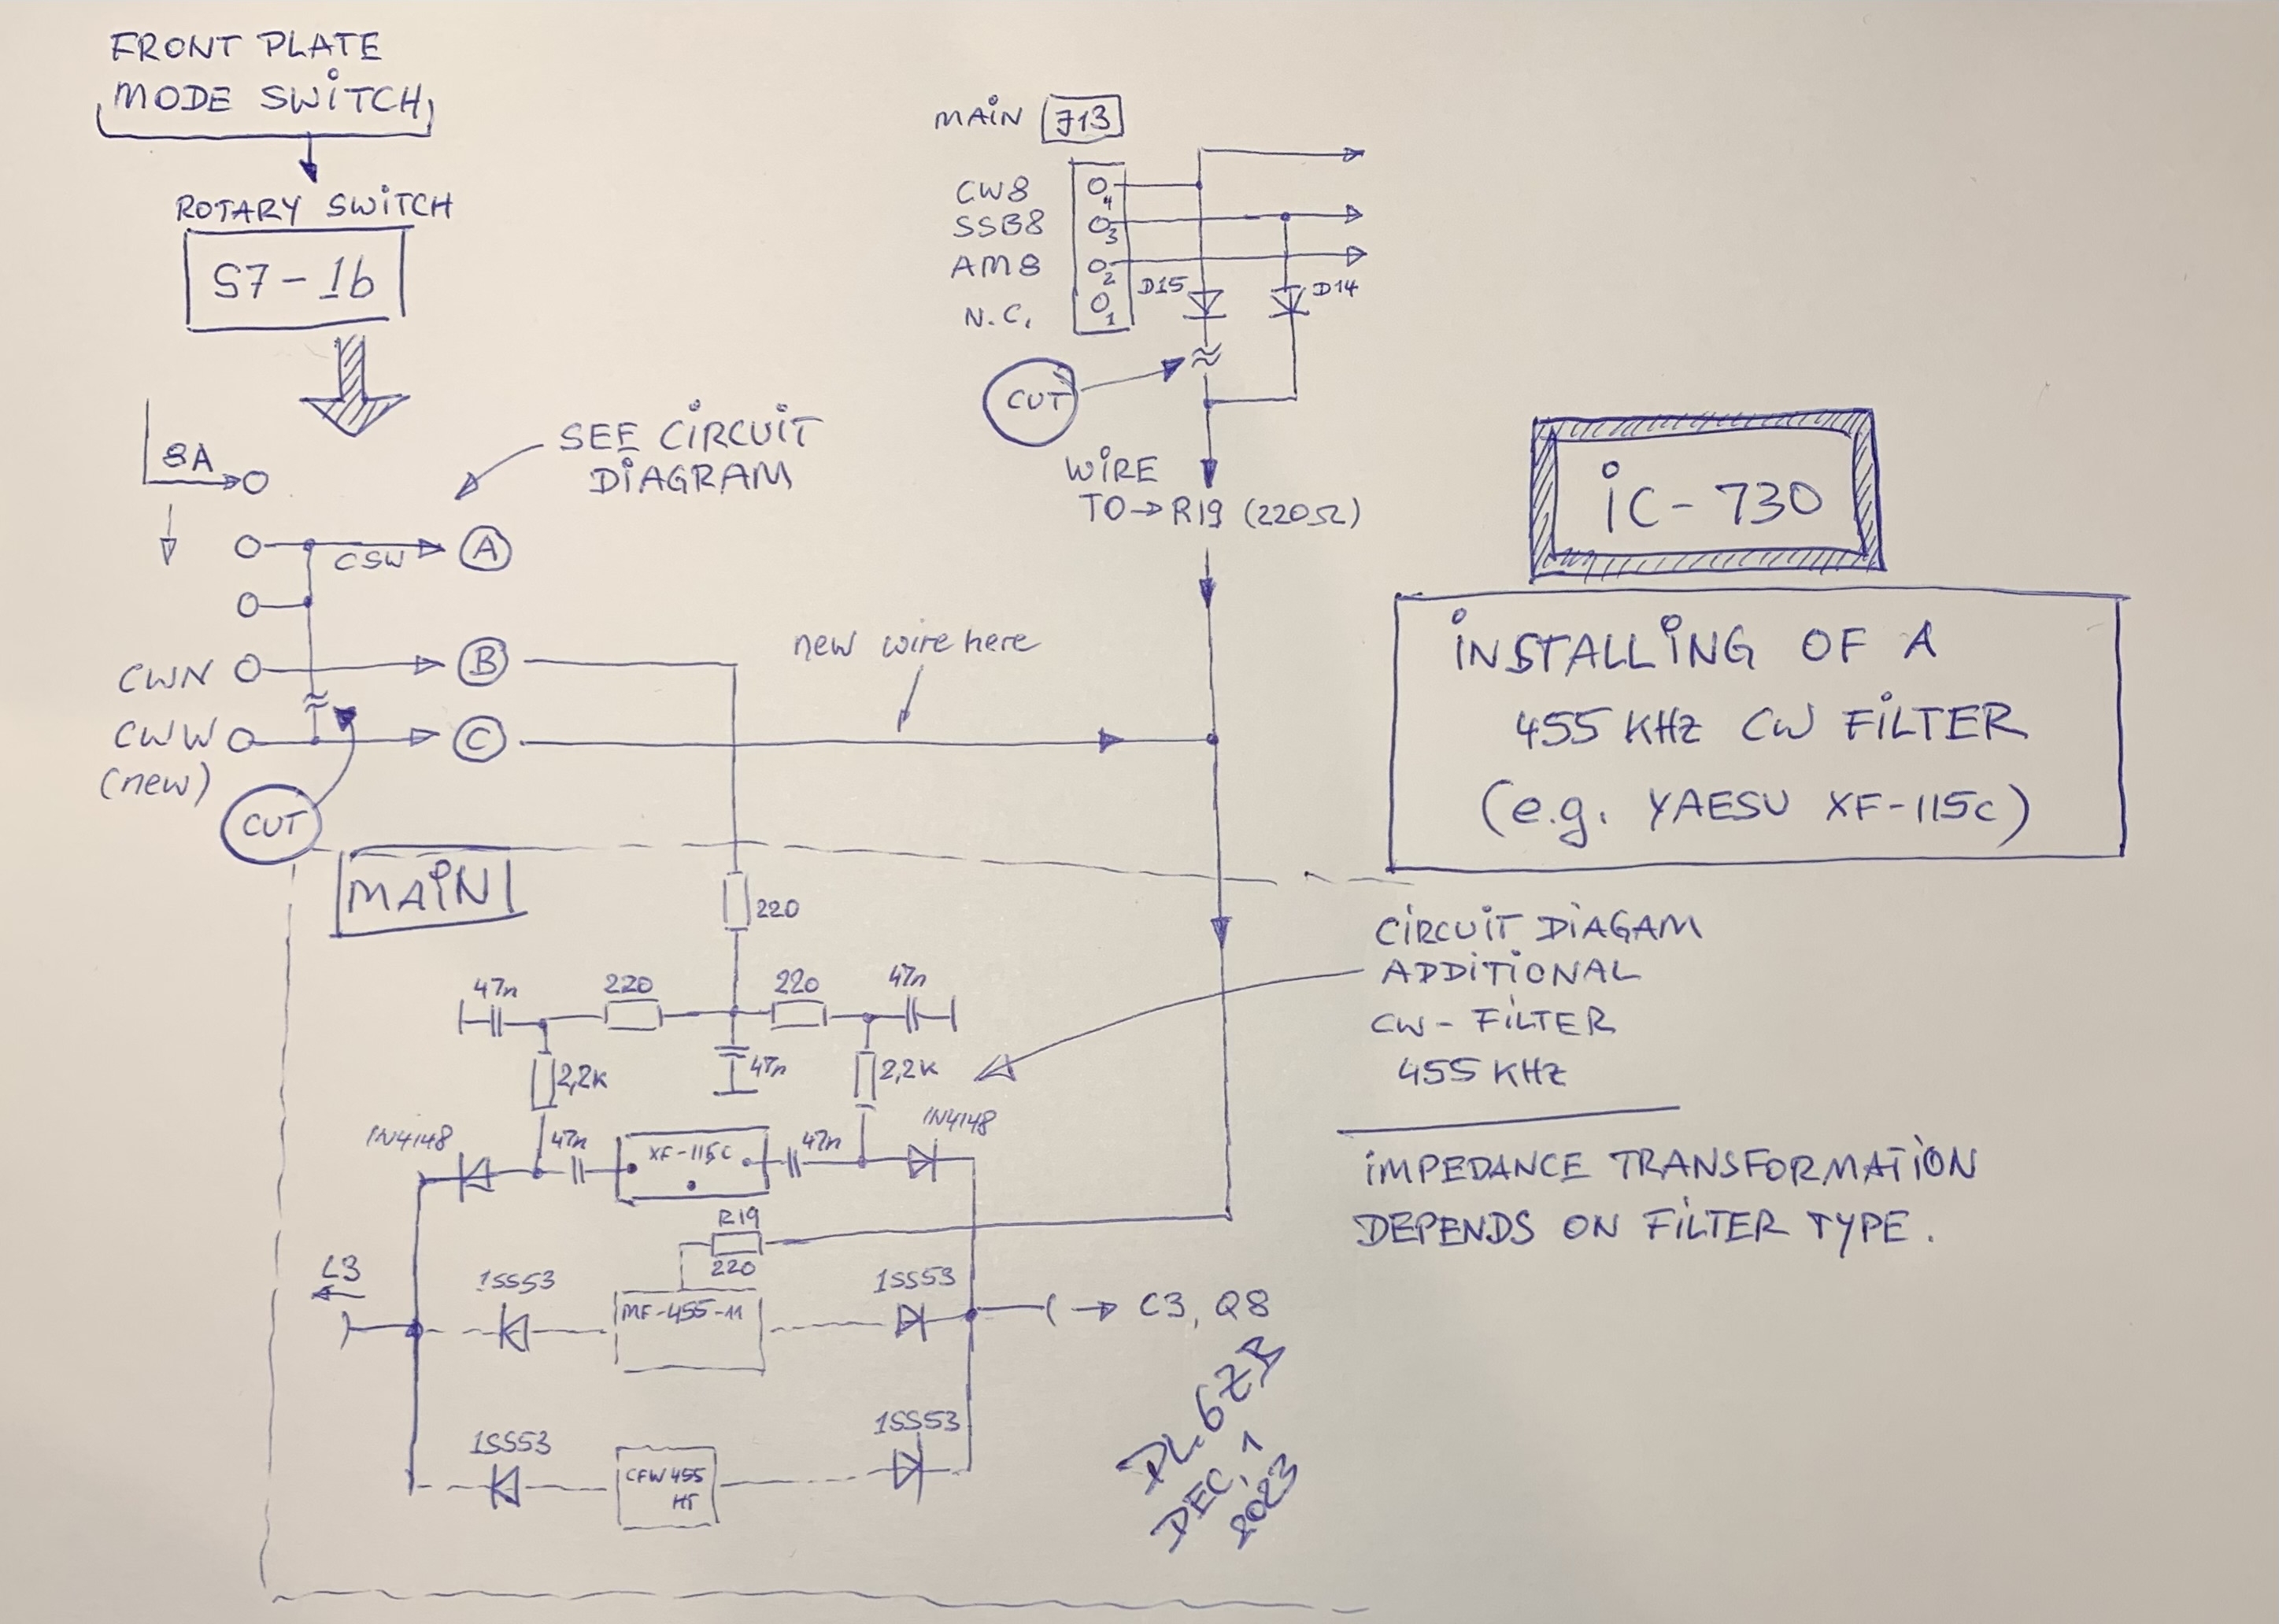 FRONT PLATE
MODE SWITCH
ROTARY SWITCH
S7-1b
8A
SEE CIRCUIT
DIAGRAM
CSW
A
CWN
B
CWW
(new)
C
CUT
new wire here
MAIN J13
CW8
4
SSB8
3
AM8
2
N.C.
1
D15
D14
CUT
WIRE
TO → R19 (220Ω)
iC-730
INSTALLING OF A
455 KHz CW FILTER
(e.g. YAESU XF-115C)
MAIN
220
47n
220
220
47n
2,2K
47n
2,2K
1N4148
47n
XF-115C
47n
1N4148
R19
220
L3
1SS53
MF-455-11
1SS53
→ C3, Q8
1SS53
CFW455
HT
1SS53
CIRCUIT DIAGAM
ADDITIONAL
CW-FILTER
455 KHz
IMPEDANCE TRANSFORMATION
DEPENDS ON FILTER TYPE.
DEC, 1
2023